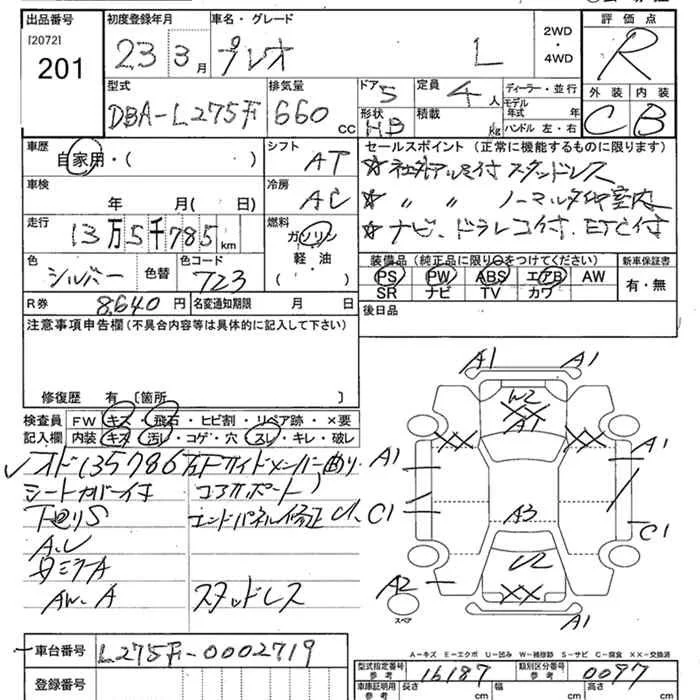 出品番号
[2072]
201
初度登録年月
23 3月
車名・グレード
プレオ L
2WD
・
4WD
評価点
R
型式
DBA-L275F
排気量
660 CC
ドア 5
形状 HB
定員 4人
積載 kg
ディーラー・並行
モデル
年式 年
ハンドル 左・右
外装 内装
C B
車歴
自家用・( )
シフト
AT
セールスポイント (正常に機能するものに限ります)
☆社外アルミ付スタッドレス
☆ 〃 〃 ノーマルタイヤ室内
☆ナビ、ドラレコ付、ETC付
車検
年 月( 日)
冷房
AC
走行
13万5千785km
燃料
ガソリン
軽・油
( )
色
シルバー
色替
色コード
723
装備品 (純正品に限り○をつけてください)
PS PW ABS エアB AW
SR ナビ TV カワ
新車保証書
有・無
R券 8,640円
名変通知期限 月 日
後日品
注意事項申告欄 (不具合内容等は具体的に記入して下さい)
修復歴 有 〔箇所
検査員
記入欄
FW キズ・飛石・ヒビ割・リペア跡・×要
内装 キズ・汚レ・コゲ・穴・スレ・キレ・破レ
オド135786
サイドメンバー曲り
シートカバー付
コアサポート
下廻りS
エンドパネル修正
A.U
AW.A
スタッドレス
A1 A1
W2
XX
A1
XX XX
A1 A1
C1 C1
A3
A2
U2
XX
スペア
A1
A-キズ E-エクボ U-凹み W-補修跡 S-サビ C-腐食 XX-交換済
車台番号
L275F-0002719
登録番号
型式指定番号
参考
16187
類別区分番号
参考
0097
車庫証明用
参考
長さ cm
幅 cm
高さ cm